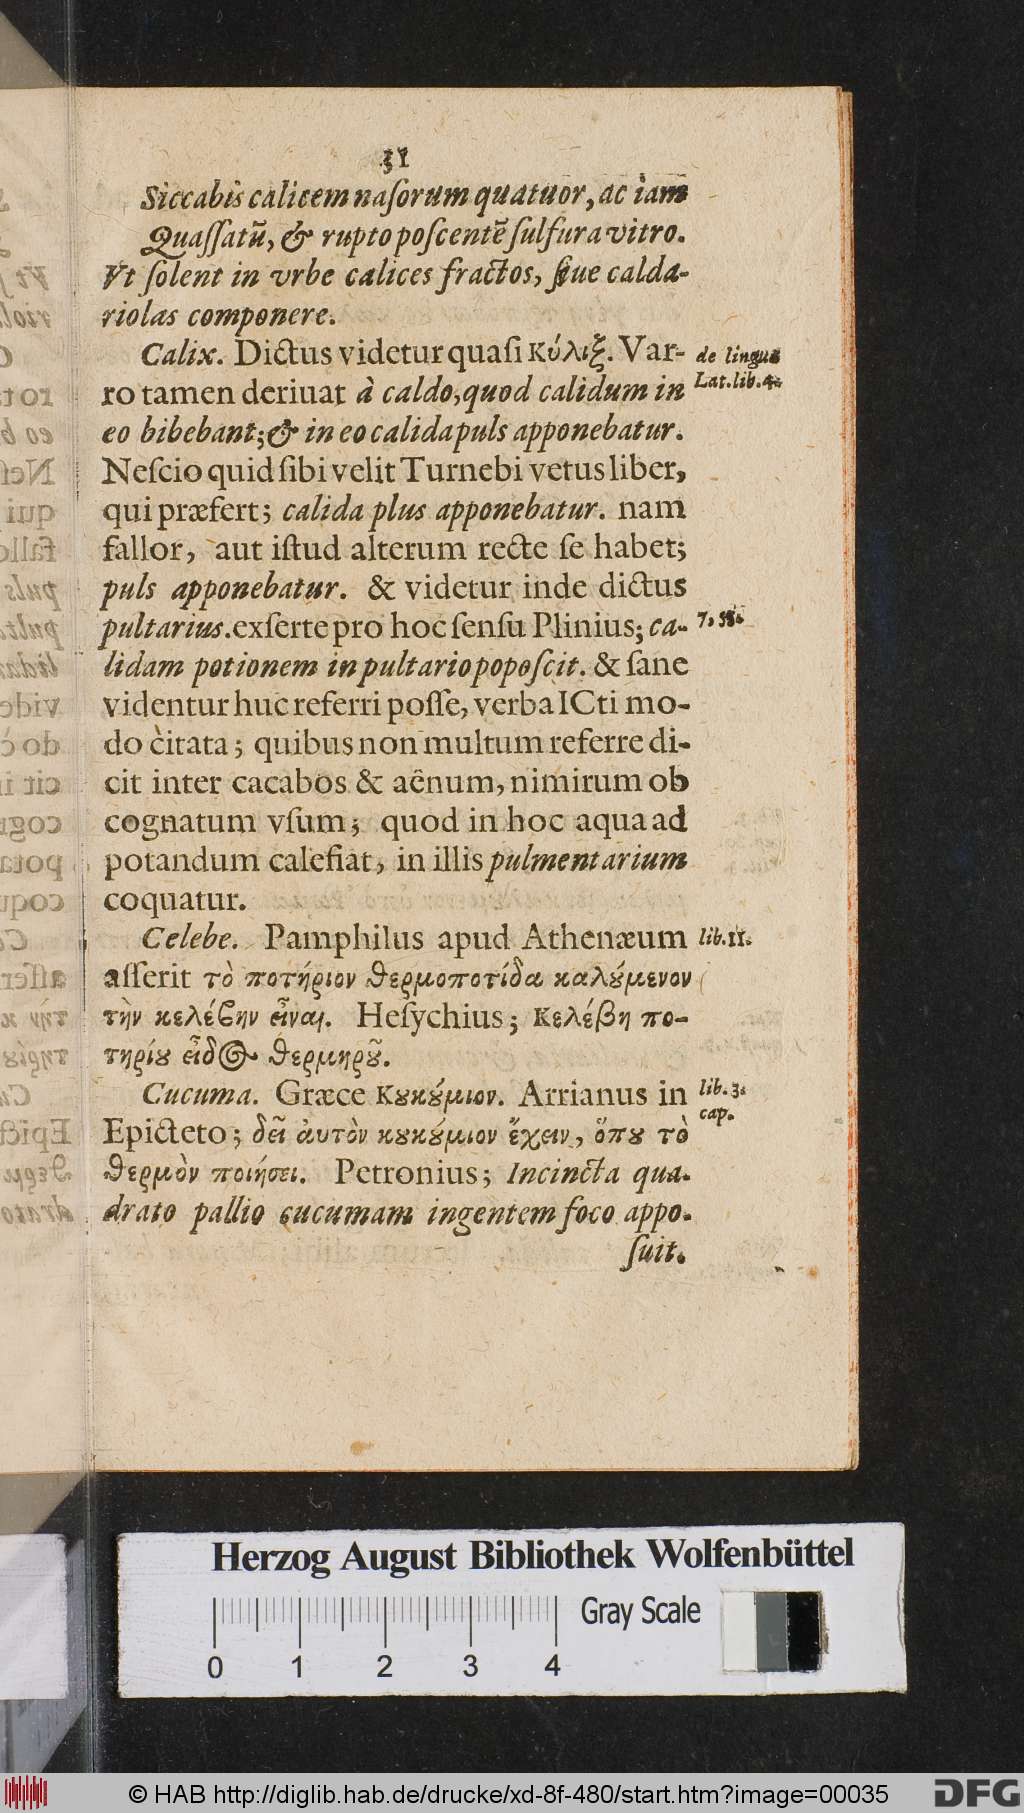 31
Siccabis calicem nasorum quatuor, ac iam
Quassatũ, & rupto poscentẽ sulfura vitro.
Vt solent in vrbe calices fractos, siue calda-
riolas componere.
Calix. Dictus videtur quasi Κύλιξ. Var-
de lingua
ro tamen deriuat à caldo, quod calidum in
Lat. lib. 4.
eo bibebant; & in eo calida puls apponebatur.
Nescio quid sibi velit Turnebi vetus liber,
qui præfert; calida plus apponebatur. nam
fallor, aut istud alterum recte se habet;
puls apponebatur. & videtur inde dictus
pultarius. exserte pro hoc sensu Plinius; ca-
7, 53.
lidam potionem in pultario poposcit. & sane
videntur huc referri posse, verba ICti mo-
do citata; quibus non multum referre di-
cit inter cacabos & aënum, nimirum ob
cognatum vsum; quod in hoc aqua ad
potandum calefiat, in illis pulmentarium
coquatur.
Celebe. Pamphilus apud Athenæum
lib. 11.
asserit τὸ ποτήριον θερμοποτίδα καλȣ́μενον
τὴν κελέβην εἶναι. Hesychius; Κελέβη πο-
τηρίȣ εἶδος θερμηρȣ͂.
Cucuma. Græce Κȣκȣ́μιον. Arrianus in
lib. 3.
cap.
Epicteto; δεῖ ἀυτὸν κȣκȣ́μιον ἔχειν, ὅπȣ τὸ
θερμὸν ποιήσει. Petronius; Incincta qua-
drato pallio cucumam ingentem foco appo-
suit.
Herzog August Bibliothek Wolfenbüttel
Gray Scale
0 1 2 3 4
© HAB http://diglib.hab.de/drucke/xd-8f-480/start.htm?image=00035
DFG